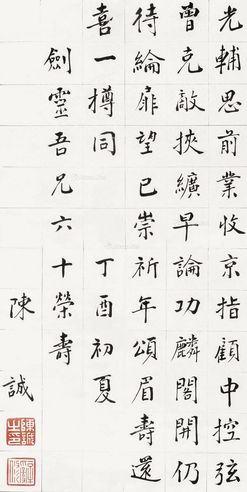 光輔思前業收京指顧中控弦
曾克敵挾纊早論功麟閣開仍
待綸扉望已崇祈年頌眉壽還
喜一樽同　丁酉初夏
劍靈吾兄六十榮壽
陳誠
陳誠之印